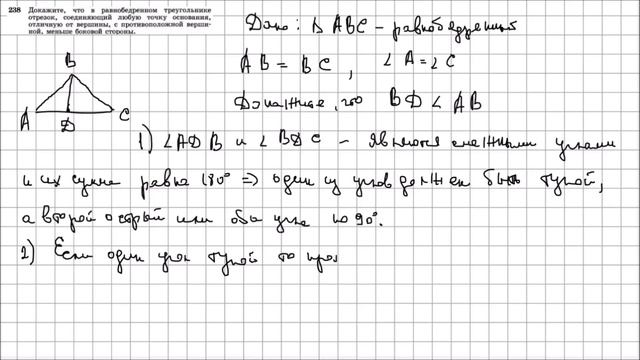 238 Докажите, что в равнобедренном треугольнике
отрезок, соединяющий любую точку основания,
отличную от вершины, с противоположной верши-
ной, меньше боковой стороны.
Дано: Δ ABC – равнобедренный
AB = BC, ∠A = ∠C
Докажите, что BD < AB
B
A D C
1) ∠ADB и ∠BDC – являются смежными углами
и их сумма равна 180° => один из углов должен быть тупой,
а второй острый или оба угла по 90°.
2) Если один угол тупой то